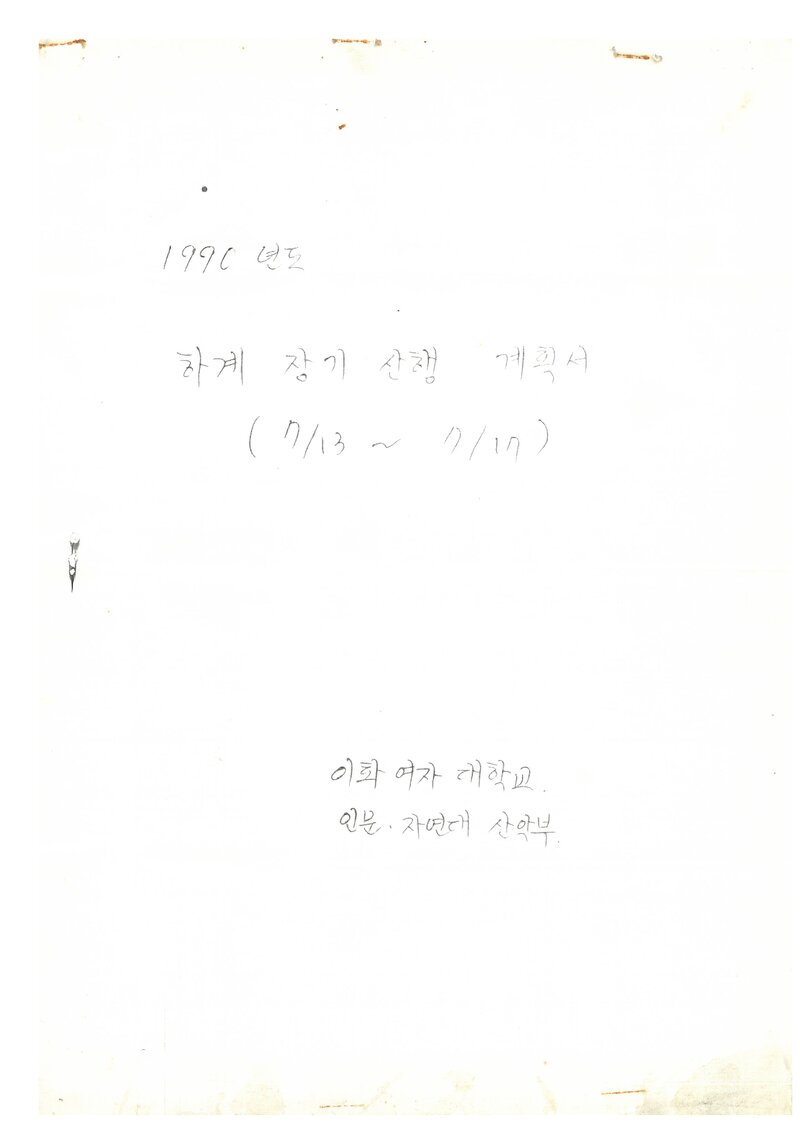 1990 년도
하계 장기 산행 계획서
( 7/13 ~ 7/17 )
이화 여자 대학교.
인문·자연대 산악부.